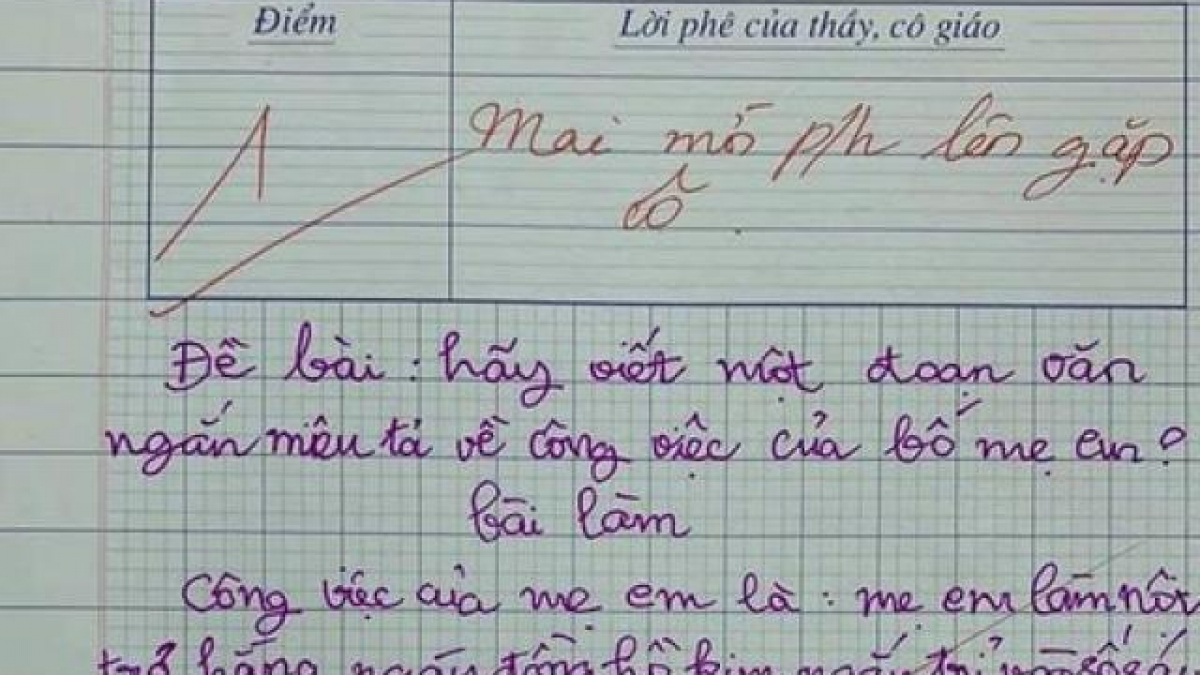 Điểm
Lời phê của thầy, cô giáo
1
Mai mờ p/h lên gặp
cô.
Đề bài: hãy viết một đoạn văn
ngắn miêu tả về công việc của bố mẹ em?
bài làm
Công việc của mẹ em là: mẹ em làm nôi